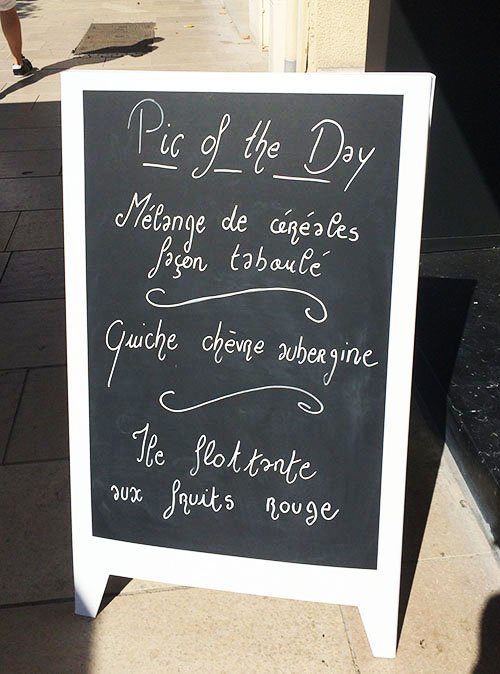 Pic of the Day
Mélange de céréales
façon taboulé
Quiche chèvre aubergine
Ile flottante
aux fruits rouge